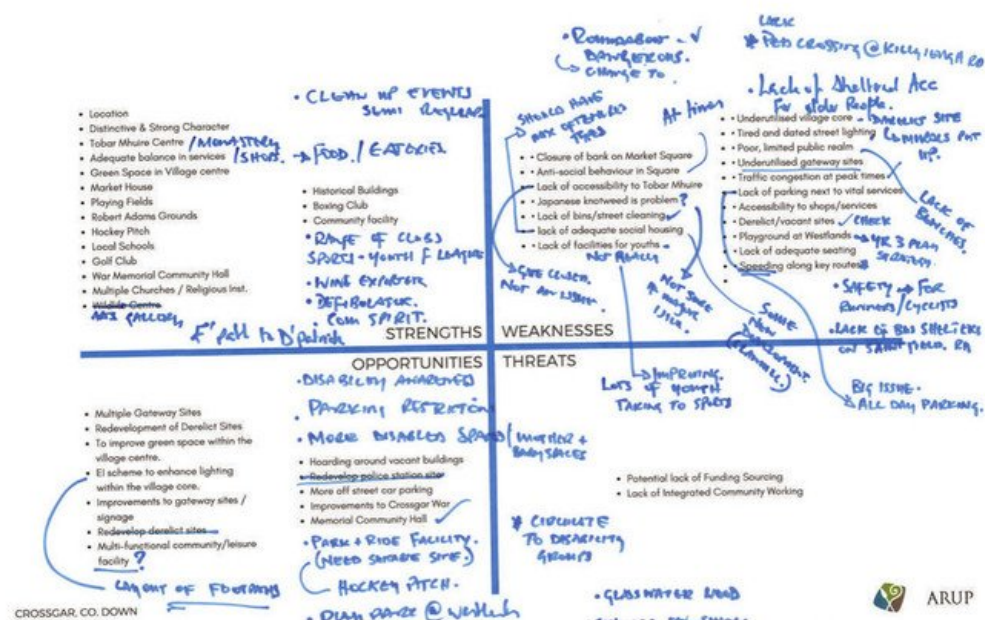 • CLEAN UP EVENTS
SEMI REGULAR
• Location
• Distinctive & Strong Character
• Tobar Mhuire Centre / MONASTERY
• Adequate balance in services / SHOPS. → FOOD / EATORIES.
• Green Space in Village centre
• Market House
• Playing Fields
• Robert Adams Grounds
• Hockey Pitch
• Local Schools
• Golf Club
• War Memorial Community Hall
• Multiple Churches / Religious Inst.
• Wildlife Centre
GALLERY
path to D'patrick
• Historical Buildings
• Boxing Club
• Community facility
• RANGE OF CLUBS
SPORTS - YOUTH F LEAGUE
• WINE EXPORTER
• DEFIBULATOR.
COM SPIRIT.
STRENGTHS
WEAKNESSES
• ROUNDABOUT - ✓
DANGEROUS.
CHANGE TO
SHOULD HAVE
MIX OF TENURED
TYPES
At times
• • Closure of bank on Market Square
• • Anti-social behaviour in Square
• • Lack of accessibility to Tobar Mhuire
• • Japanese knotweed is problem?
• • Lack of bins/street cleaning ✓
• • lack of adequate social housing
• • Lack of facilities for youths -
NOT REALLY
NOT AN ISSUE.
NOT SURE
A MAJOR
ISSUE.
SOME
NEW
DEVELOPMENT.
IMPROVING.
LOTS OF YOUTH
TAKING TO SPORTS
LACK
* PED CROSSING @ KILLYLEAGH RD
• Lack of Sheltered Acc
For older People.
• • Underutilised village core - DARKEST SITE
• • Tired and dated street lighting
• • Poor, limited public realm
• • Underutilised gateway sites
• • Traffic congestion at peak times ✓
• • Lack of parking next to vital services
• • Accessibility to shops/services
• • Derelict/vacant sites ✓ CHECK
• • Playground at Westlands → YR 3 PLAY
STRATEGY.
• • Lack of adequate seating
• • Speeding along key routes
LACK OF
BENCHES.
• SAFETY → FOR
RUNNERS/CYCLISTS
• LACK OF BUS SHELTERS
ON SAINTFIELD RD
BIG ISSUE.
ALL DAY PARKING.
OPPORTUNITIES
THREATS
• DISABILITY AWARENESS
PARKING RESTRICTION
• MORE DISABLED SPACES / MOTHER +
BABY SPACES
• Multiple Gateway Sites
• Redevelopment of Derelict Sites
• To improve green space within the
village centre.
• EI scheme to enhance lighting
within the village core.
• Improvements to gateway sites /
signage
• Redevelop derelict sites
• Multi-functional community/leisure
facility ?
LAYOUT OF FOOTPATHS
• Hoarding around vacant buildings
• Redevelop police station site
• More off street car parking
• Improvements to Crossgar War
• Memorial Community Hall ✓
• PARK + RIDE FACILITY.
(NEED SUITABLE SITE.)
HOCKEY PITCH.
• PLAY PARK @ Westlands
• Potential lack of Funding Sourcing
• Lack of Integrated Community Working
* CIRCULATE
TO DISABILITY
GROUPS
• GLASSWATER WOOD
CROSSGAR, CO. DOWN
ARUP